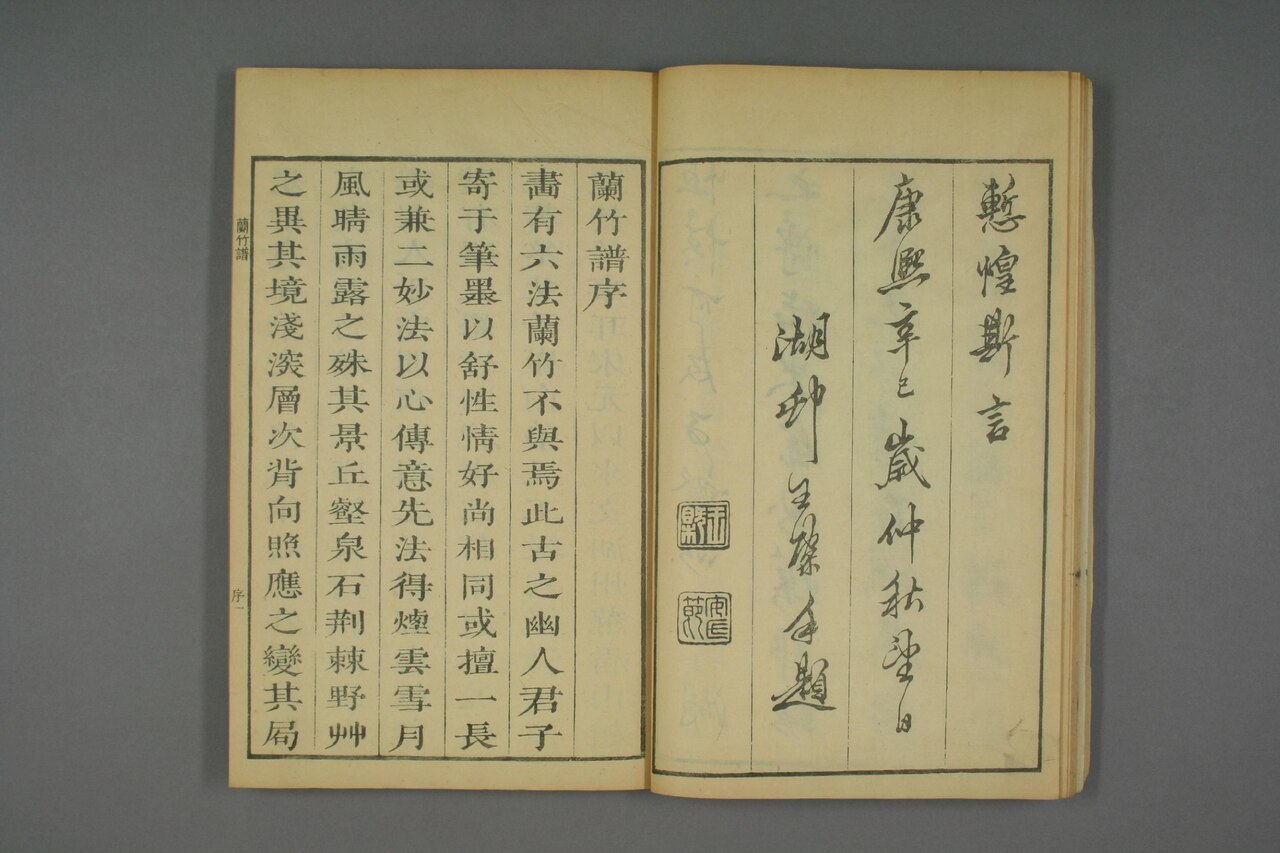 慙惶斯言
康熙辛巳歲仲秋望日
湖邨王槩手題
安節
蘭竹譜序
畫有六法蘭竹不與焉此古之幽人君子
寄于筆墨以舒性情好尚相同或擅一長
或兼二妙法以心傳意先法得煙雲雪月
風晴雨露之殊其景丘壑泉石荆棘野艸
之異其境淺深層次背向照應之變其局
蘭竹譜
序一